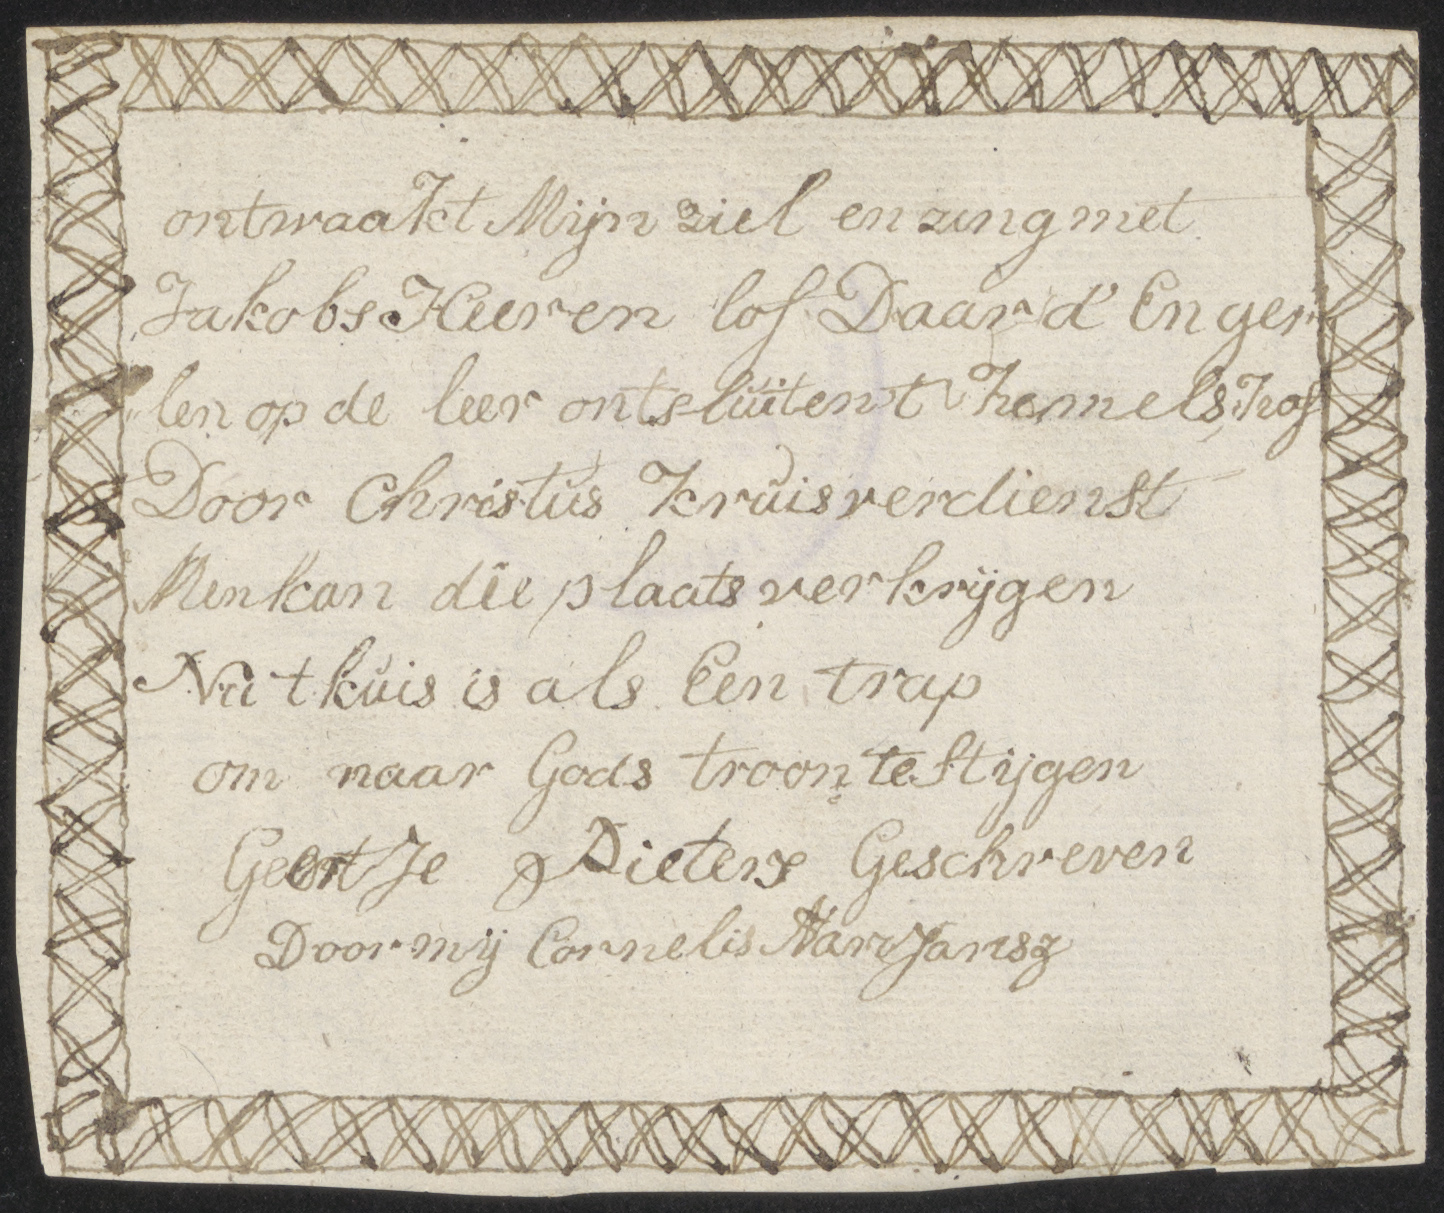 ontwaakt Mijn ziel en zing met
Jakobs Heeren lof Daar d' Enger
len op de leer ontsluiten t hemels hof
Door Christus kruisverdienst
Men kan die plaats verkrijgen
Nu t kuis is als Een trap
om naar Gods troon te stijgen
Geertje Pieters Geschreven
Door mij Cornelis Jansz